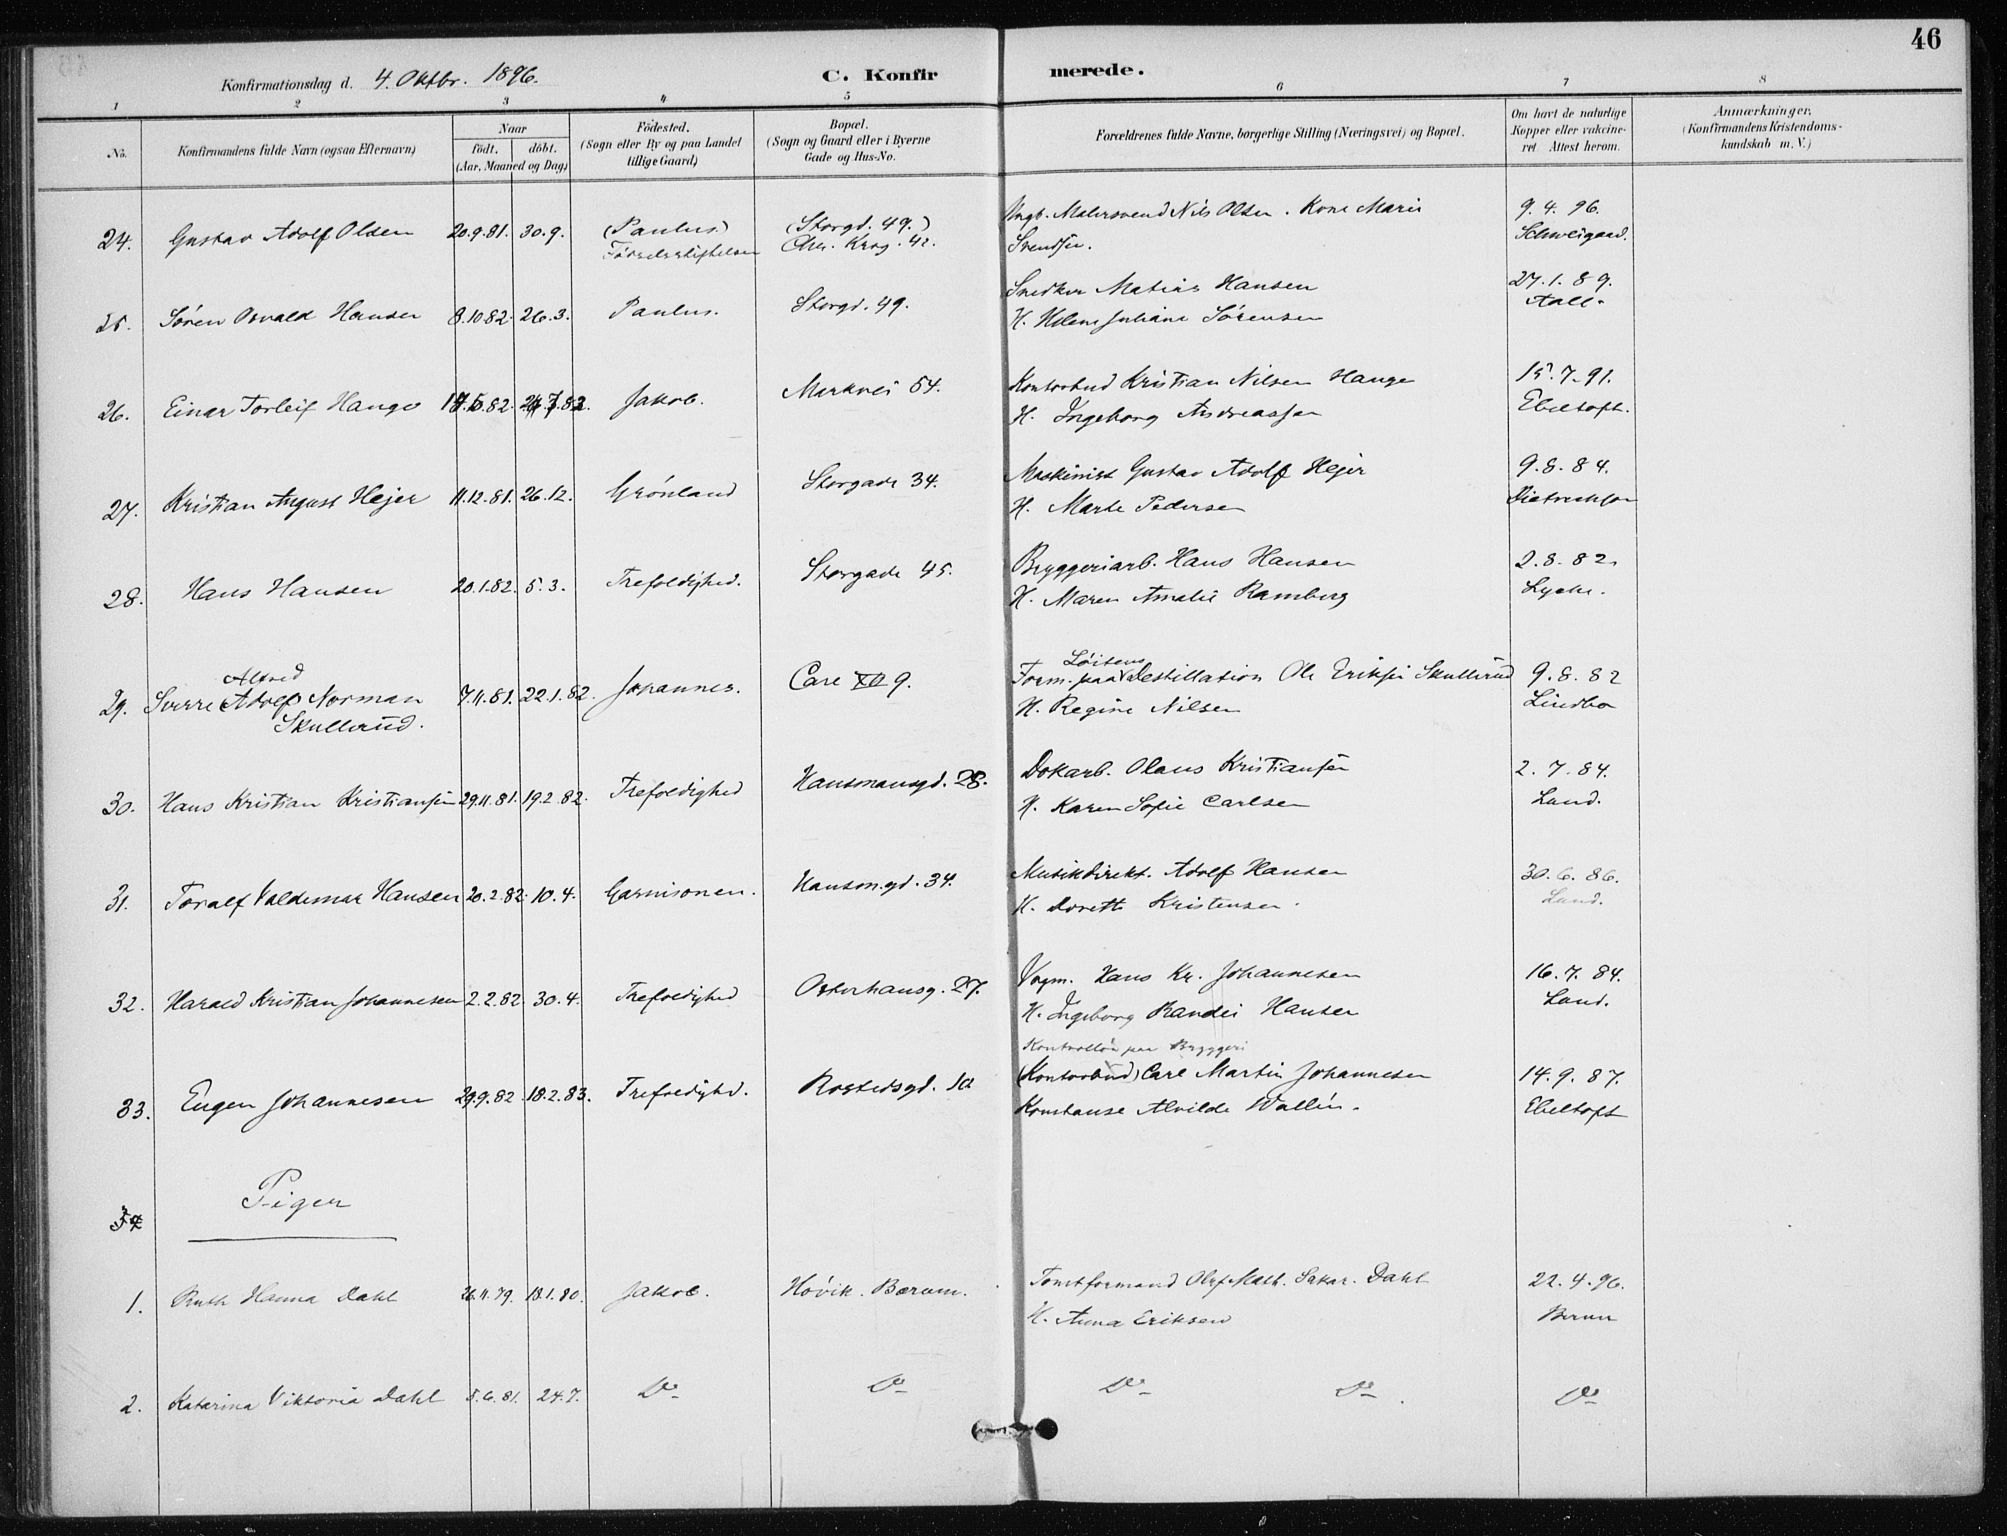 46
Konfirmationsdag d. 4. Oktbr. 1896.
C. Konfirmerede.
1 2 3 4 5 6 7 8
No.
Konfirmandens fulde Navn (ogsaa Efternavn)
Naar
födt. döbt.
(Aar, Maaned og Dag)
Födested.
(Sogn eller By og paa Landet
tillige Gaard)
Bopæl.
(Sogn og Gaard eller i Byerne
Gade og Hus-No.
Forældrenes fulde Navne, borgerlige Stilling (Næringsvei) og Bopæl.
Om havt de naturlige
Kopper eller vakcine-
ret. Attest herom.
Anmærkninger.
(Konfirmandens Kristendoms-
kundskab m. V.)
24. Gustav Adolf Olsen 20.9.81. 30.9. (Paulus) (Storgd. 49.) Ungk. Malersvend Nils Olsen. Kone Marie 9.4.96.
Födselsstiftelsen Chr. Krog. 42. Svendsen. Schweigaard.
25. Søren Osvald Hansen 8.10.82. 26.3. Paulus. Storgd. 49. Snedker Matias Hansen 27.1.89.
H. Helene Juliane Sörensen Aall.
26. Einar Torleif Hauge Jakob. Markvei 54. Kontorbud Kristian Nilsen Hauge 15.7.91.
H. Ingeborg Andreassen Ebeltoft.
27. Kristian August Hejer 11.12.81. 26.12. Grönland Storgade 34. Maskinist Gustav Adolf Hejer 9.8.84.
H. Marte Pedersen Dietrichson
28. Hans Hansen 20.1.82. 5.3. Trefoldighed. Storgade 45. Bryggeriarb. Hans Hansen 2.8.82.
H. Maren Amalie Ramberg Lyche.
29. Sverre Alfred Adolf Norman 7.11.81. 22.1.82. Johannes. Carl XII 9. Form. paa Löitens Destillation Ole Eriksen Skullerud 9.8.82
Skullerud. H. Regine Nilsen Lindbo
30. Hans Kristian Kristiansen 29.11.81. 19.2.82. Trefoldighed Hausmansgd. 28. Dokarb. Olaus Kristiansen 2.7.84.
H. Karen Sofie Carlsen Lund.
31. Toralf Valdemar Hansen 20.2.82. 10.4. Garnisonen. Hausm.gd. 34. Musikdirekt. Adolf Hansen 30.6.86.
H. Dorette Kristensen. Lund.
32. Harald Kristian Johannesen 2.2.82. 30.4. Trefoldighed Osterhausg. 27. Vogm. Hans Kr. Johannesen 16.7.84.
H. Ingeborg Randei Hansen Lund.
Kontrollör paa Bryggeri
33. Eugen Johannesen 29.9.82. 18.2.83. Trefoldighd. Rostedsgd. 10 (Kontorbud) Carl Martin Johannesen 14.9.87.
Konstanse Alvilde Wallin. Ebeltoft
34 Piger
1. Ruth Hanna Dahl 26.11.79. 18.1.80. Jakob. Hövik. Bærum. Tomtformand Olaf Math. Sakar. Dahl 22.4.96.
H. Anna Eriksen
2. Katarina Viktoria Dahl 5.6.81. 24.7. Do Do Do Do Do